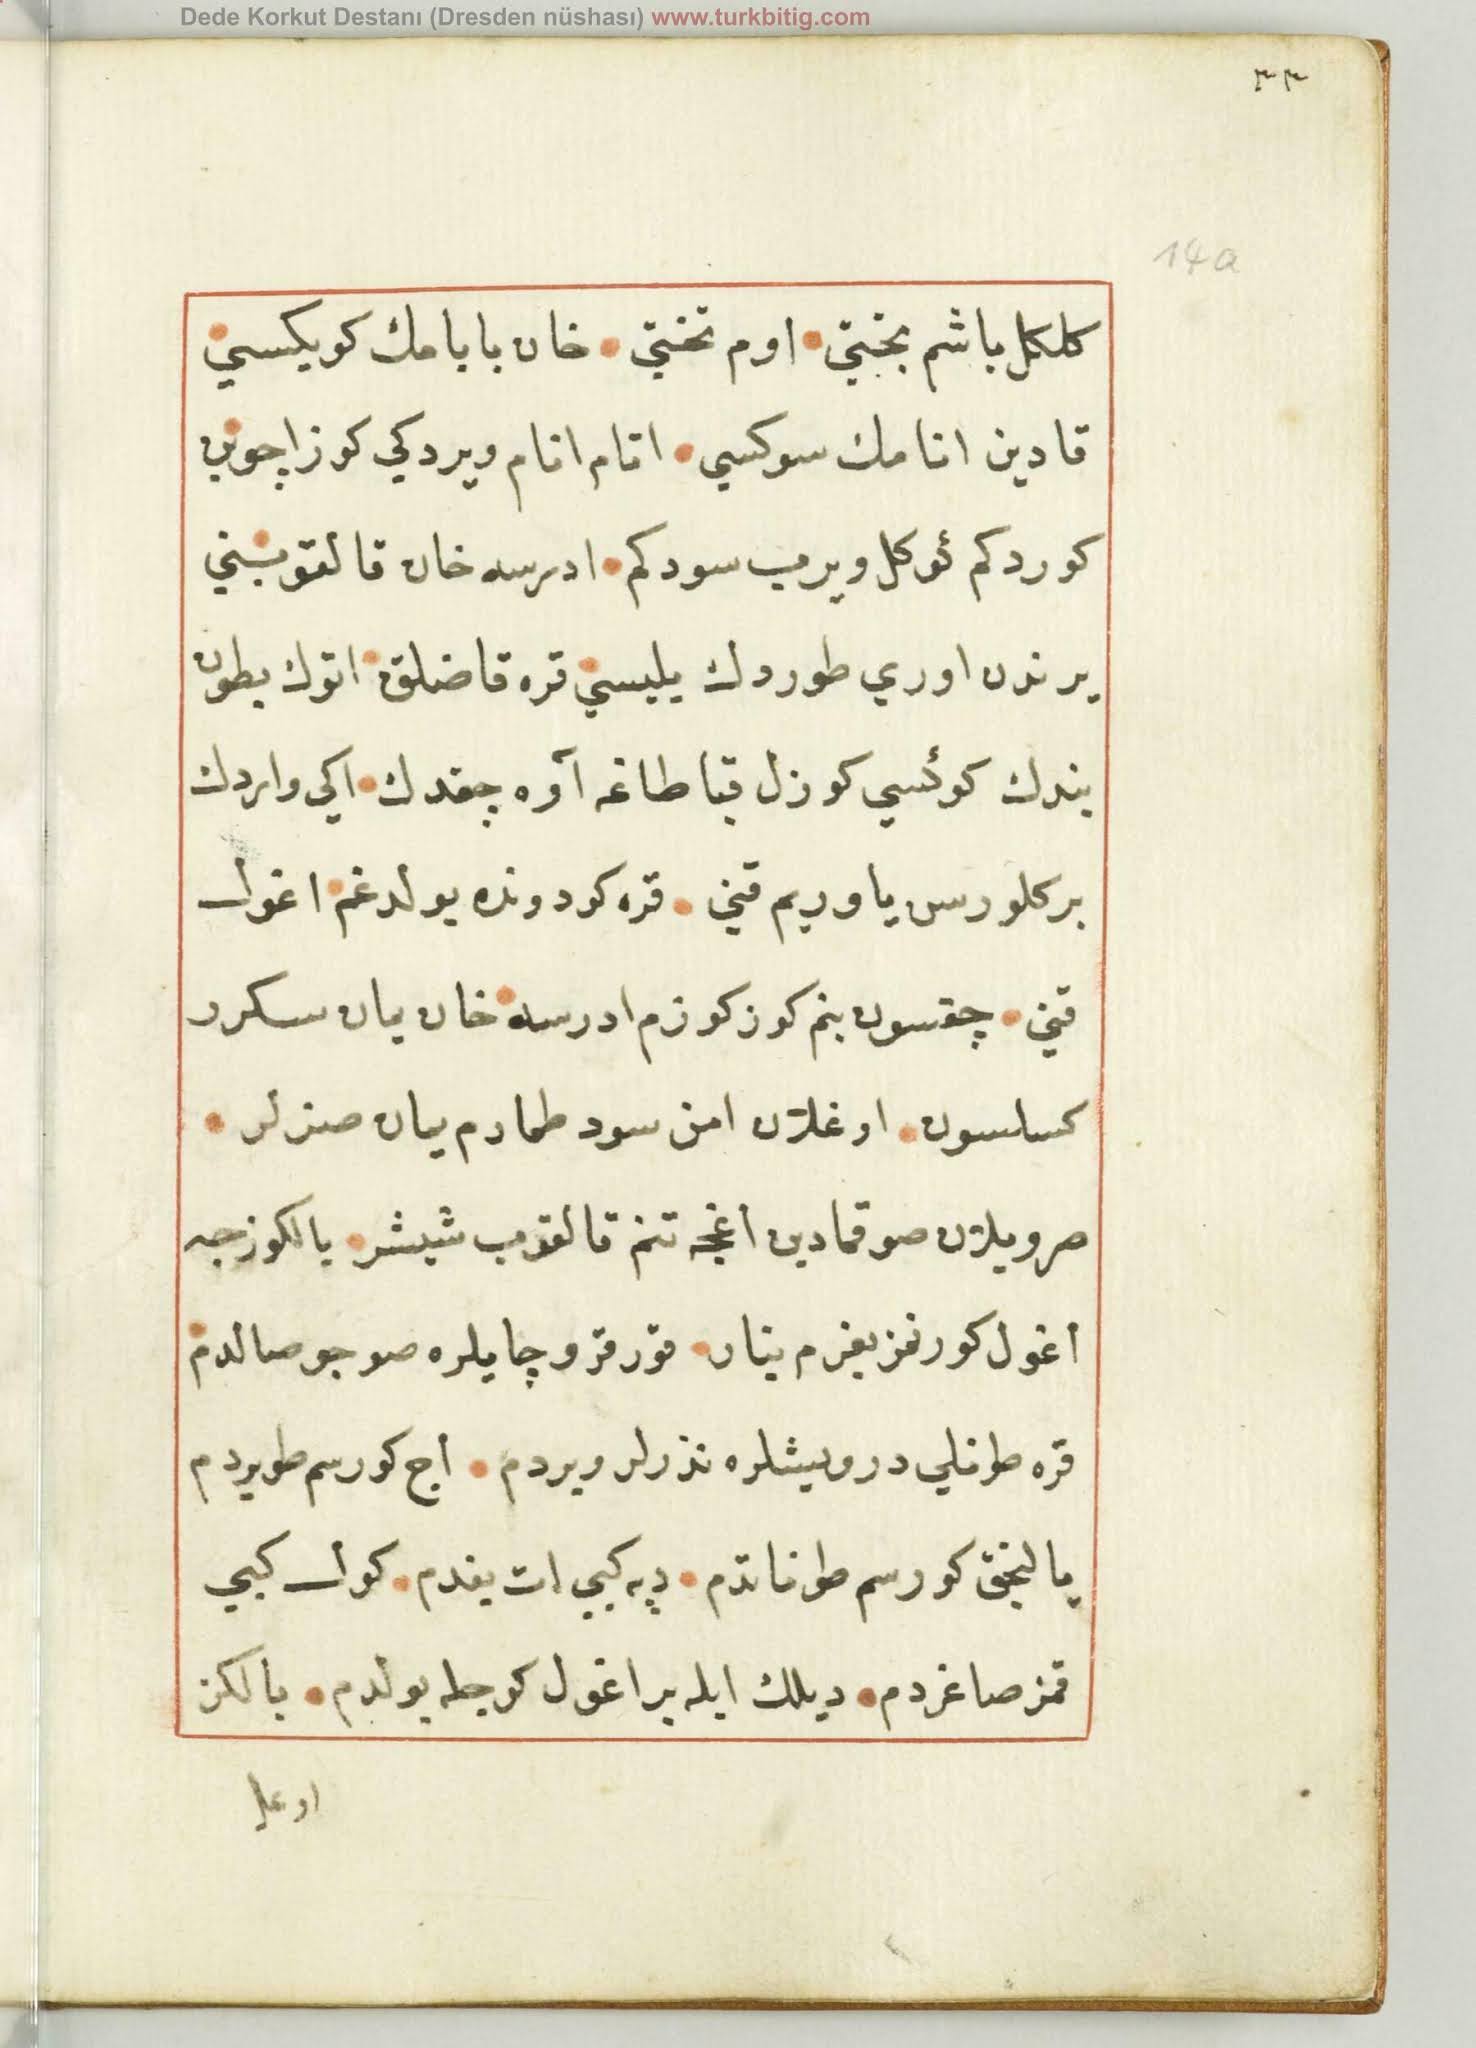 Dede Korkut Destanı (Dresden nüshası) www.turkbitig.com
٣٣
14a
كلكل باشم بختي اوم تختي خان بابامك كويكسي
قادين انامك سوكسي اتام انام ويردكي كوز اچوبن
كوردكم كوكل ويرب سودكم ادرسه خان قالقوبني
يرندن اوري طوردك يلیسي قره قاضلق اتوك بطون
بندك كوكسي كوزل قبا طاغه آوه چقدك اكي واردك
بر كلورسن ياوريم قني قره كودونده بولدغم اغول
قني چقسون بنم كوز كوزم ادرسه خان يمان سكرر
كسلسون اوغلان امن سود طمارم يمان صزلر
صرويلان صوقمادين اغجه تنم قالقوب شيشر يالكوزجه
اغول كورنمز بغرم ينار قور قرو چايلره صوجو صالدم
قره طونلي درويشلره نذرلر ويردم اج كورسم طويردم
يالنجق كورسم طوناتدم دپه كبي ات يغدم كول كبي
قمز صاغردم ديلك ايله بر اغول كوجله بولدم يالكز
اوغل